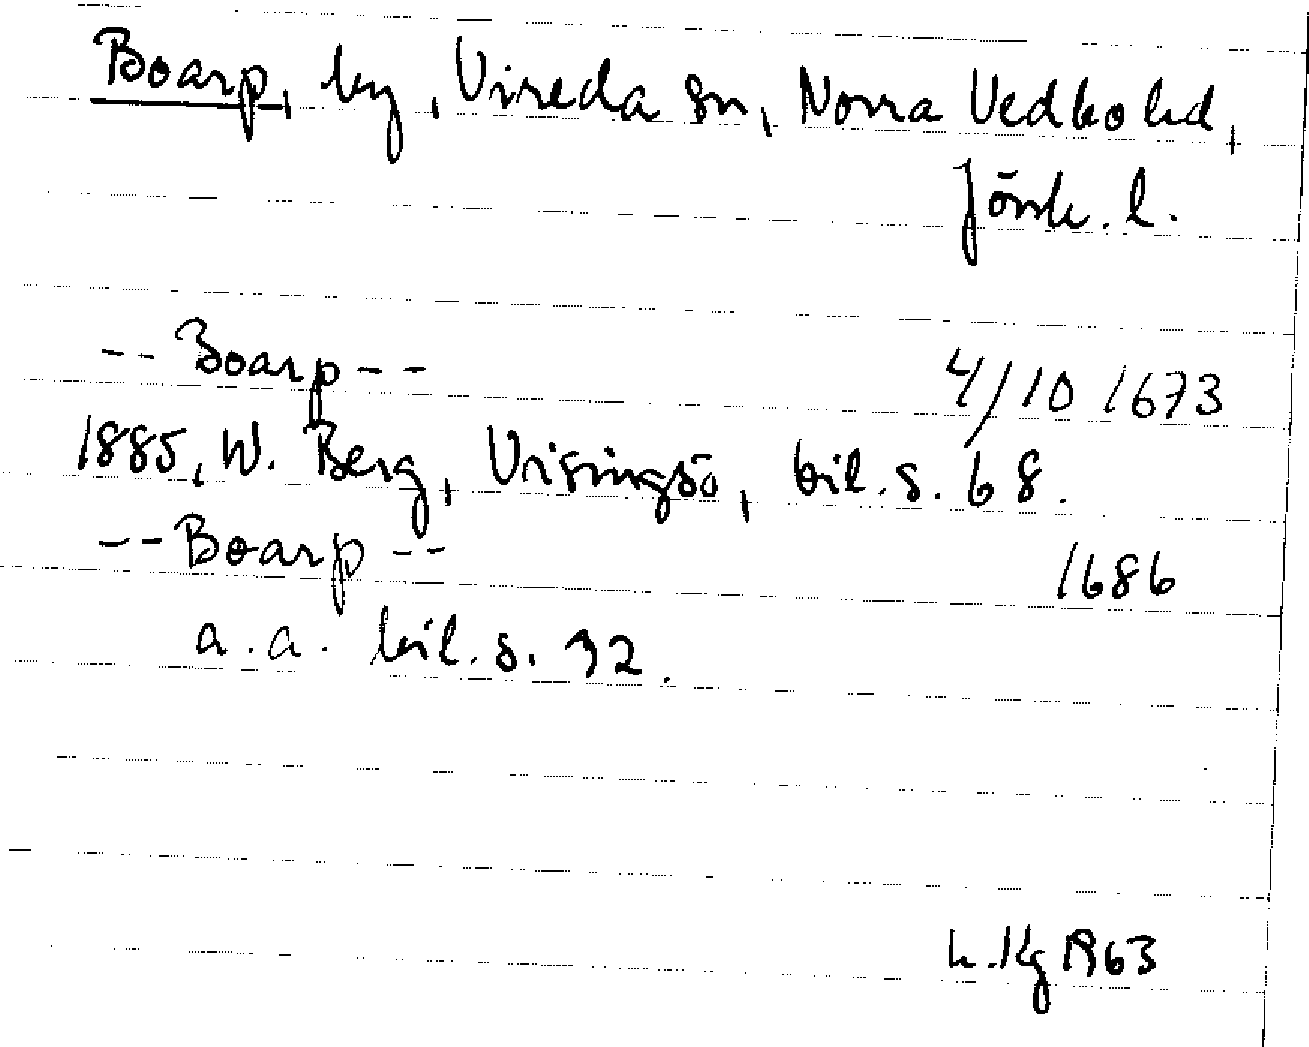 Boarp, by, Vireda sn, Norra Vedbo hd,
Jönk. l.
-- Boarp -- 4/10 1673
1885, W. Berg, Visingsö, bil. s. 68.
-- Boarp -- 1686
a.a. bil. s. 92.
1963